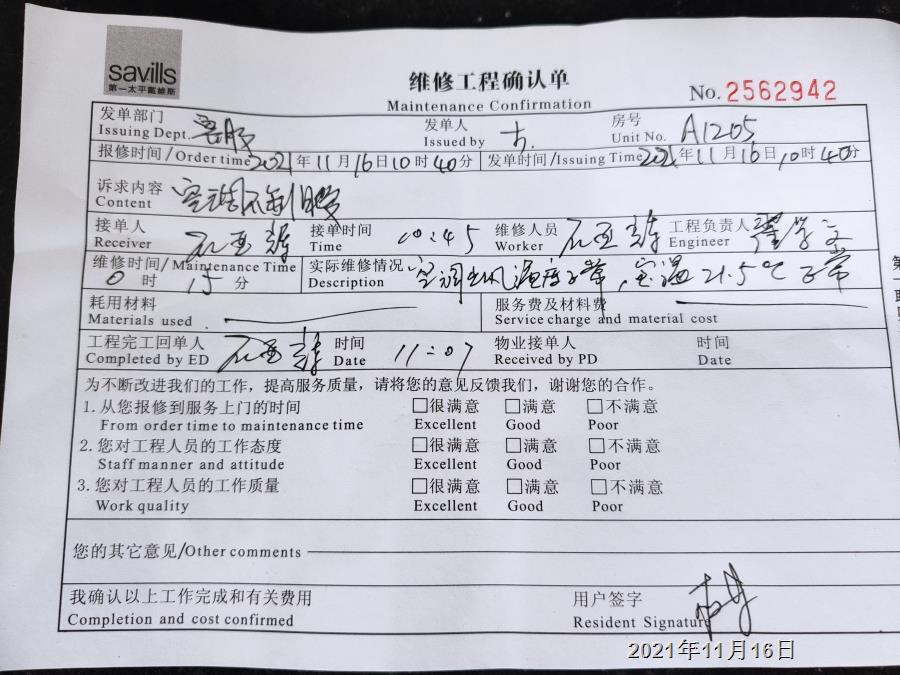 savills
第一太平戴維斯
维修工程确认单
Maintenance Confirmation
No. 2562942
发单部门 客服 发单人 房号
Issuing Dept. Issued by Unit No. A1205
报修时间/Order time 2021年11月16日10时40分 发单时间/Issuing Time 2021年11月16日10时40分
诉求内容
Content 空调不制
接单人 接单时间 维修人员 工程负责人
Receiver Time 10:45 Worker Engineer
维修时间/Maintenance Time 实际维修情况
0时15分 Description 空调出风温度正常,室温21.5℃正常
耗用材料 服务费及材料费
Materials used Service charge and material cost
工程完工回单人 时间 物业接单人 时间
Completed by ED Date 11:07 Received by PD Date
为不断改进我们的工作，提高服务质量，请将您的意见反馈我们，谢谢您的合作。
1.从您报修到服务上门的时间 □很满意 □满意 □不满意
From order time to maintenance time Excellent Good Poor
2.您对工程人员的工作态度 □很满意 □满意 □不满意
Staff manner and attitude Excellent Good Poor
3.您对工程人员的工作质量 □很满意 □满意 □不满意
Work quality Excellent Good Poor
您的其它意见/Other comments
我确认以上工作完成和有关费用 用户签字
Completion and cost confirmed Resident Signature
2021年11月16日